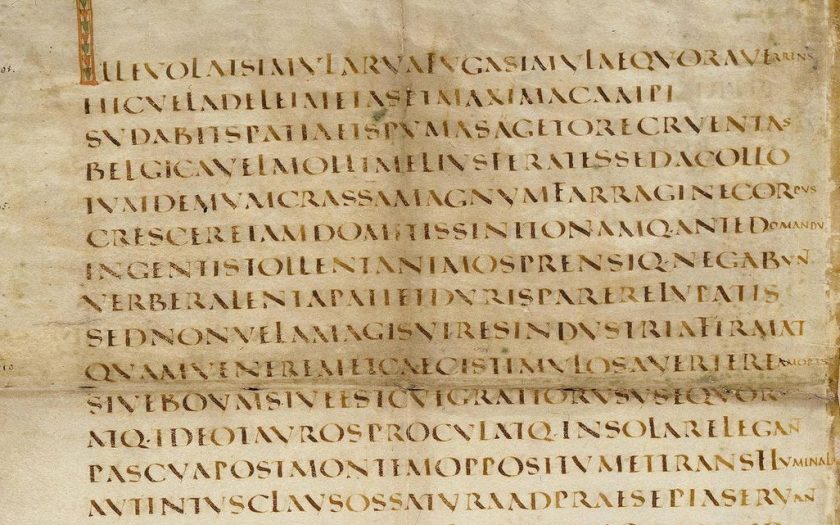 ILLEVOLATSIMVLARVAFVGASIMVLAEQVORAVERRENS
HICVELADELEIMETASETMAXIMACAMPI
SVDABITSPATIAETSPVMASAGETORECRVENTAS
BELGICAVELMOLLIMELIVSFERATESSEDACOLLO
TVMDEMVMCRASSAMAGNVMFARRAGINECORPVS
CRESCEREIAMDOMITISSINITONAMQ·ANTEDOMANDV
INGENTISTOLLENTANIMOSPRENSIQ·NEGABVNT
VERBERALENTAPATIETDVRISPARERELVPATIS
SEDNONVELAMAGISVIRESINDVSTRIAFIRMAT
QVAMVENEREMETCAECISTIMVLOSAVERTEREAMORIS
SIVEBOVMSIVEESTCVIGRATIORVSVSEQVOR
ATQ·IDEOTAVROSPROCVLATQ·INSOLARELEGANT
PASCVAPOSTMONTEMOPPOSITVMETTRANSFLVMINAL
AVTINTVSCLAVSOSSATVRAADPRAESEPIASERVANT